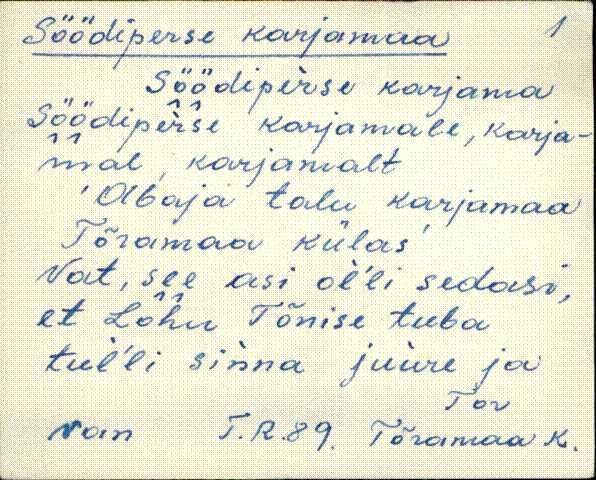 Söödiperse karjamaa 1
Söödipèrse karjama
Söödipèrse karjamale, karja-
mal, karjamalt
'Abaja talu karjamaa
Tõramaa külas'
Vat, see asi oĺli sedasi,
et Lõhu Tõnise tuba
tuĺli sìnna jùure ja
Tor
van T.R.89. Tõramaa k.